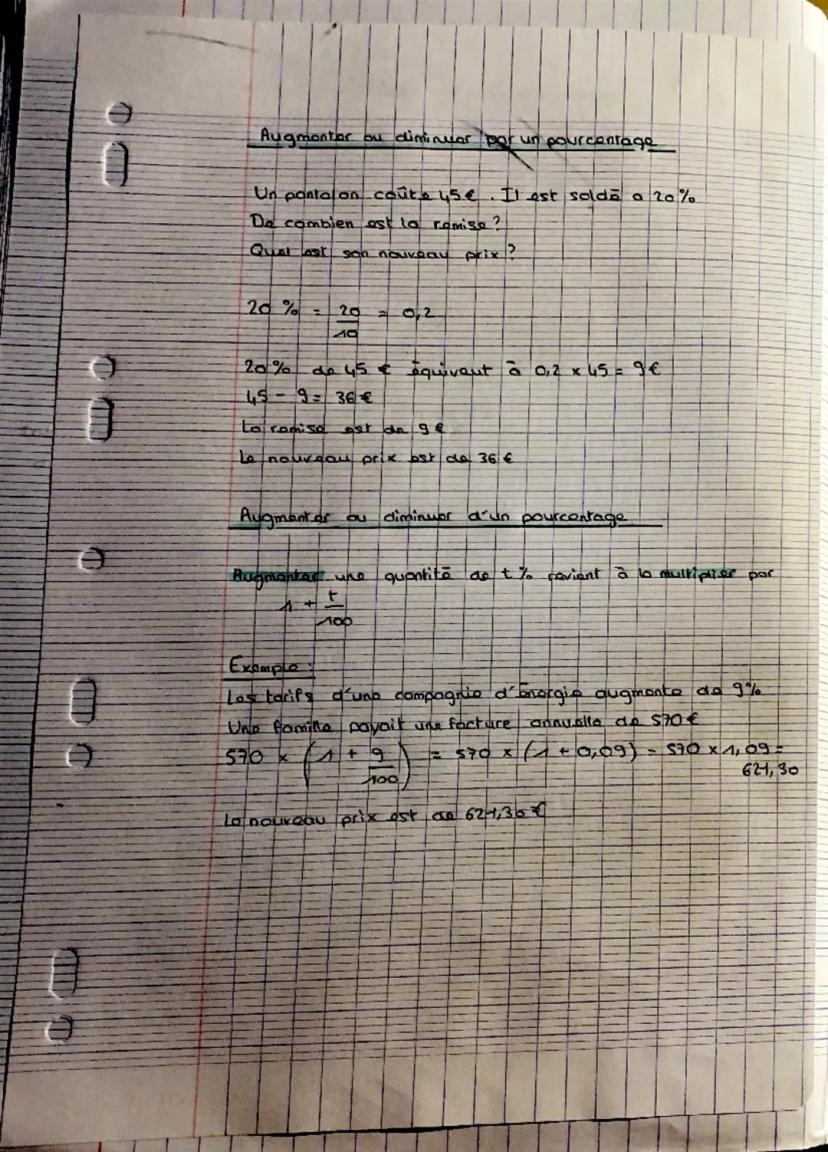 Augmenter ou diminuer par un pourcentage
Un pantalon coûte 45€. Il est soldé a 20%
De combien est la remise?
Quel est son nouveau prix?
20 % = 20/10 = 0,2
20% de 45 € équivaut à 0,2 × 45 = 9€
45 - 9 = 36€
La remise est de 9€
Le nouveau prix est de 36 €
Augmenter ou diminuer d'un pourcentage
Augmenter une quantité de t% revient à la multiplier par
1 + t/100
Exemple:
Les tarifs d'une compagnie d'énergie augmente de 9%
Une famille payait une facture annuelle de 570€
570 × (1 + 9/100) = 570 × (1 + 0,09) = 570 × 1,09 =
621,30
Le nouveau prix est de 621,30€